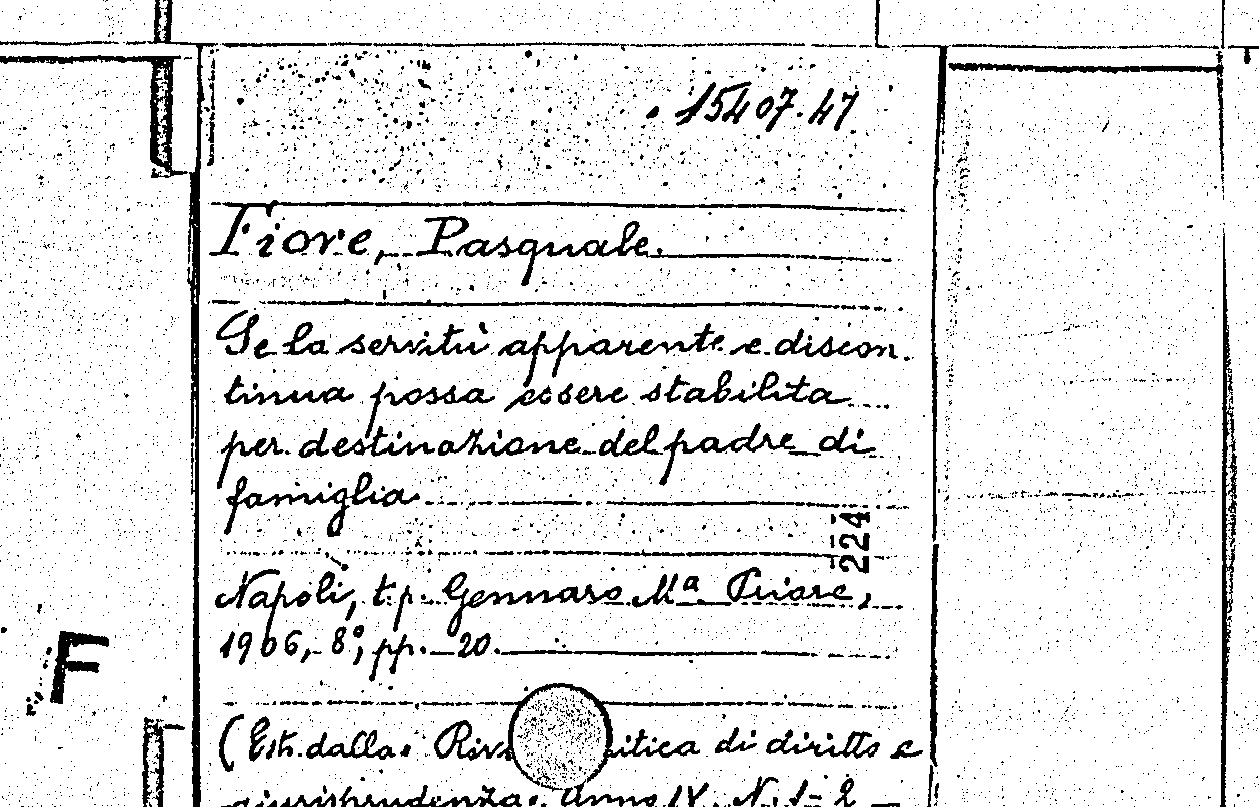 15407.47
Fiore, Pasquale.
Se la servitù apparente e discon.
tinua possa essere stabilita
per destinazione del padre di
famiglia.
224
Napoli, t.p. Gennaro Mª Priore,
1906, 8º, pp. 20.
F
(Estr. dalla: Riv itica di diritto e
giurisprudenza. Anno IV. N. 1-2 —